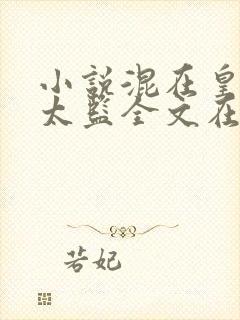 小説混在皇
太監全文在
若妃